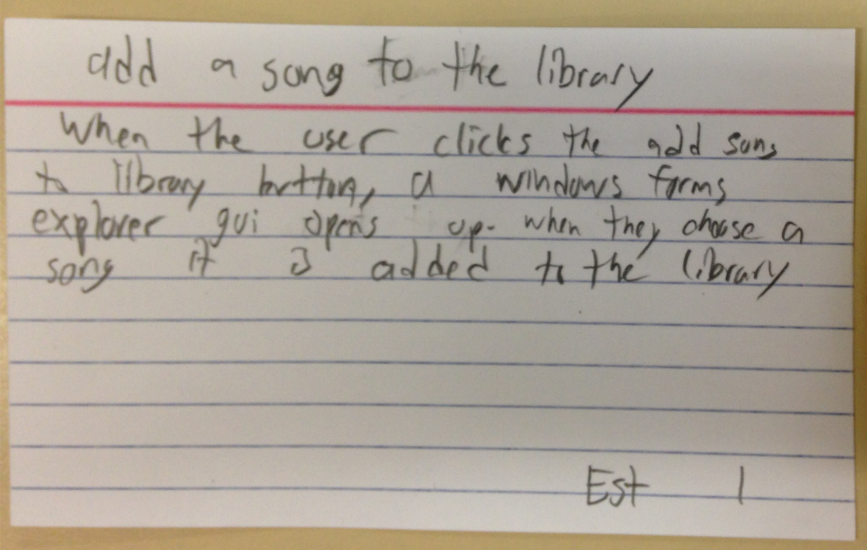 add a song to the library
When the user clicks the add song
to library button, a windows forms
explorer gui opens up. when they choose a
song it is added to the library
Est 1